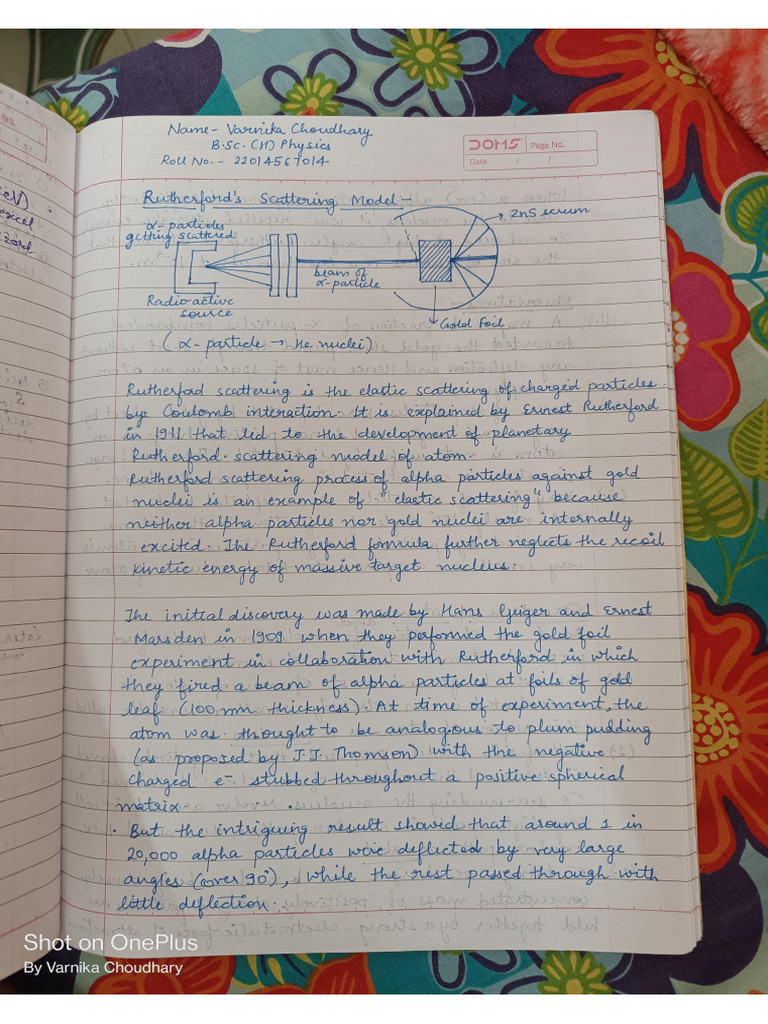 Name- Varnika Choudhary
B.Sc. (H) Physics
Roll No. - 22014567014
DOMS
Page No.
Date / /
Rutherford's Scattering Model -
α- particles
getting scattered
ZnS scrum
beam of
α-particle
Radio active
source
Gold Foil
(α- particle → He nuclei)
Rutherford scattering is the elastic scattering of charged particles
by Coulomb interaction. It is explained by Ernest Rutherford
in 1911 that lid to the development of planetary
Rutherford. scattering model of atom.
Rutherford scattering process of alpha particles against gold
nuclei is an example of "elastic scattering" because
neither alpha particles nor gold nuclei are internally
excited. The Rutherford formula further neglects the recoil
kinetic energy of massive target nucleus.
The initial discovery was made by Hans Geiger and Ernest
Marsden in 1909 when they performed the gold foil
experiment in collaboration with Rutherford in which
they fired a beam of alpha particles at foils of gold
leaf (100 nm thickness). At time of experiment, the
atom was thought to be analogious to plum pudding
(as proposed by J.J. Thomson) with the negative
charged e- stubbed throughout a positive spherical
matrix.
· But the intriguing result showed that around 1 in
20,000 alpha particles were deflected by very large
angles (over 90°), while the rest passed through with
little deflection.
Shot on OnePlus
By Varnika Choudhary